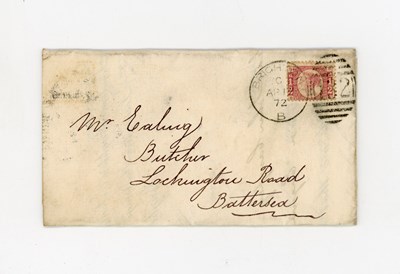 C
72
B
Mr Ealing
Butcher
Lockington Road
Battersea